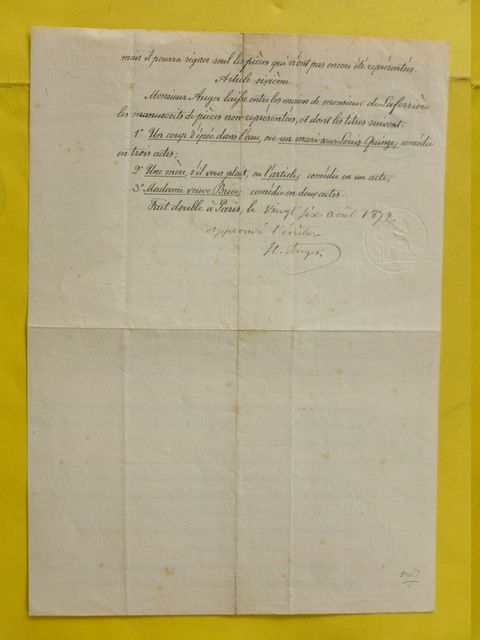 mais il pourra signer seul les pièces qui n'ont pas encore été représentées.
Article sixième.
Monsieur Auger laisse entre les mains de monsieur de Laferrière
les manuscrits de pièces non représentées, et dont les titres suivent:
1° Un coup d'épée dans l'eau, ou un mari sous Louis Quinze, comédie
en trois actes;
2° Une mère, s'il vous plaît, ou l'article, comédie en un acte;
3° Madame veuve Brice, comédie en deux actes.
Fait double à Paris, le vingt six août 1872
approuvé l'écriture
H. Auger